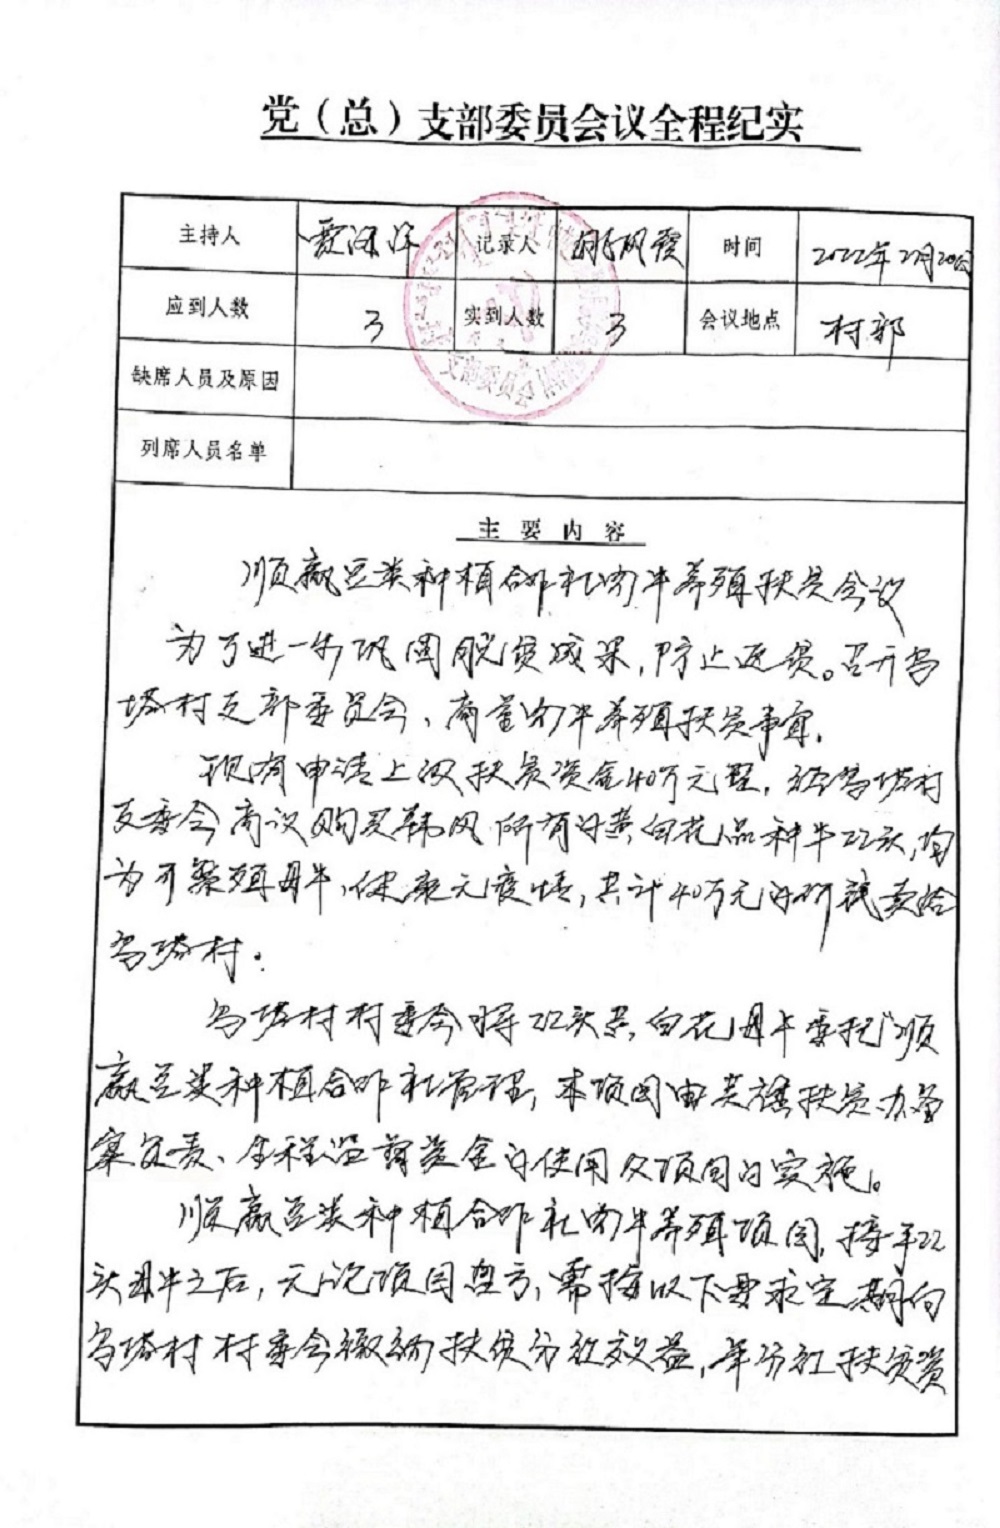 党（总）支部委员会议全程纪实
主持人 贾 记录人 凤霞 时间 2022年2月20日
应到人数 3 实到人数 3 会议地点 村部
缺席人员及原因
列席人员名单
主要内容
顺赢豆类种植合作社肉牛养殖扶贫会议
为了进一步巩固脱贫成果，防止返贫。召开乌
塔村支部委员会、商量肉牛养殖扶贫事宜。
现有申请上级扶贫资金40万元整，经乌塔村
支委会商议购买韩风所有的黄白花品种牛22头，均
为可繁殖母牛，健康无疫情，共计40万元的价钱卖给
乌塔村。
乌塔村村委会将22头黄白花母牛委托顺
赢豆类种植合作社管理，本项目由芙蓉扶贫办备
案负责、全程监督资金的使用及项目的实施。
顺赢豆类种植合作社肉牛养殖项目，接手22
头母牛之后，无论项目盈亏，需按以下要求定期向
乌塔村村委会缴纳扶贫分红效益，年分红扶贫资
支部委员会